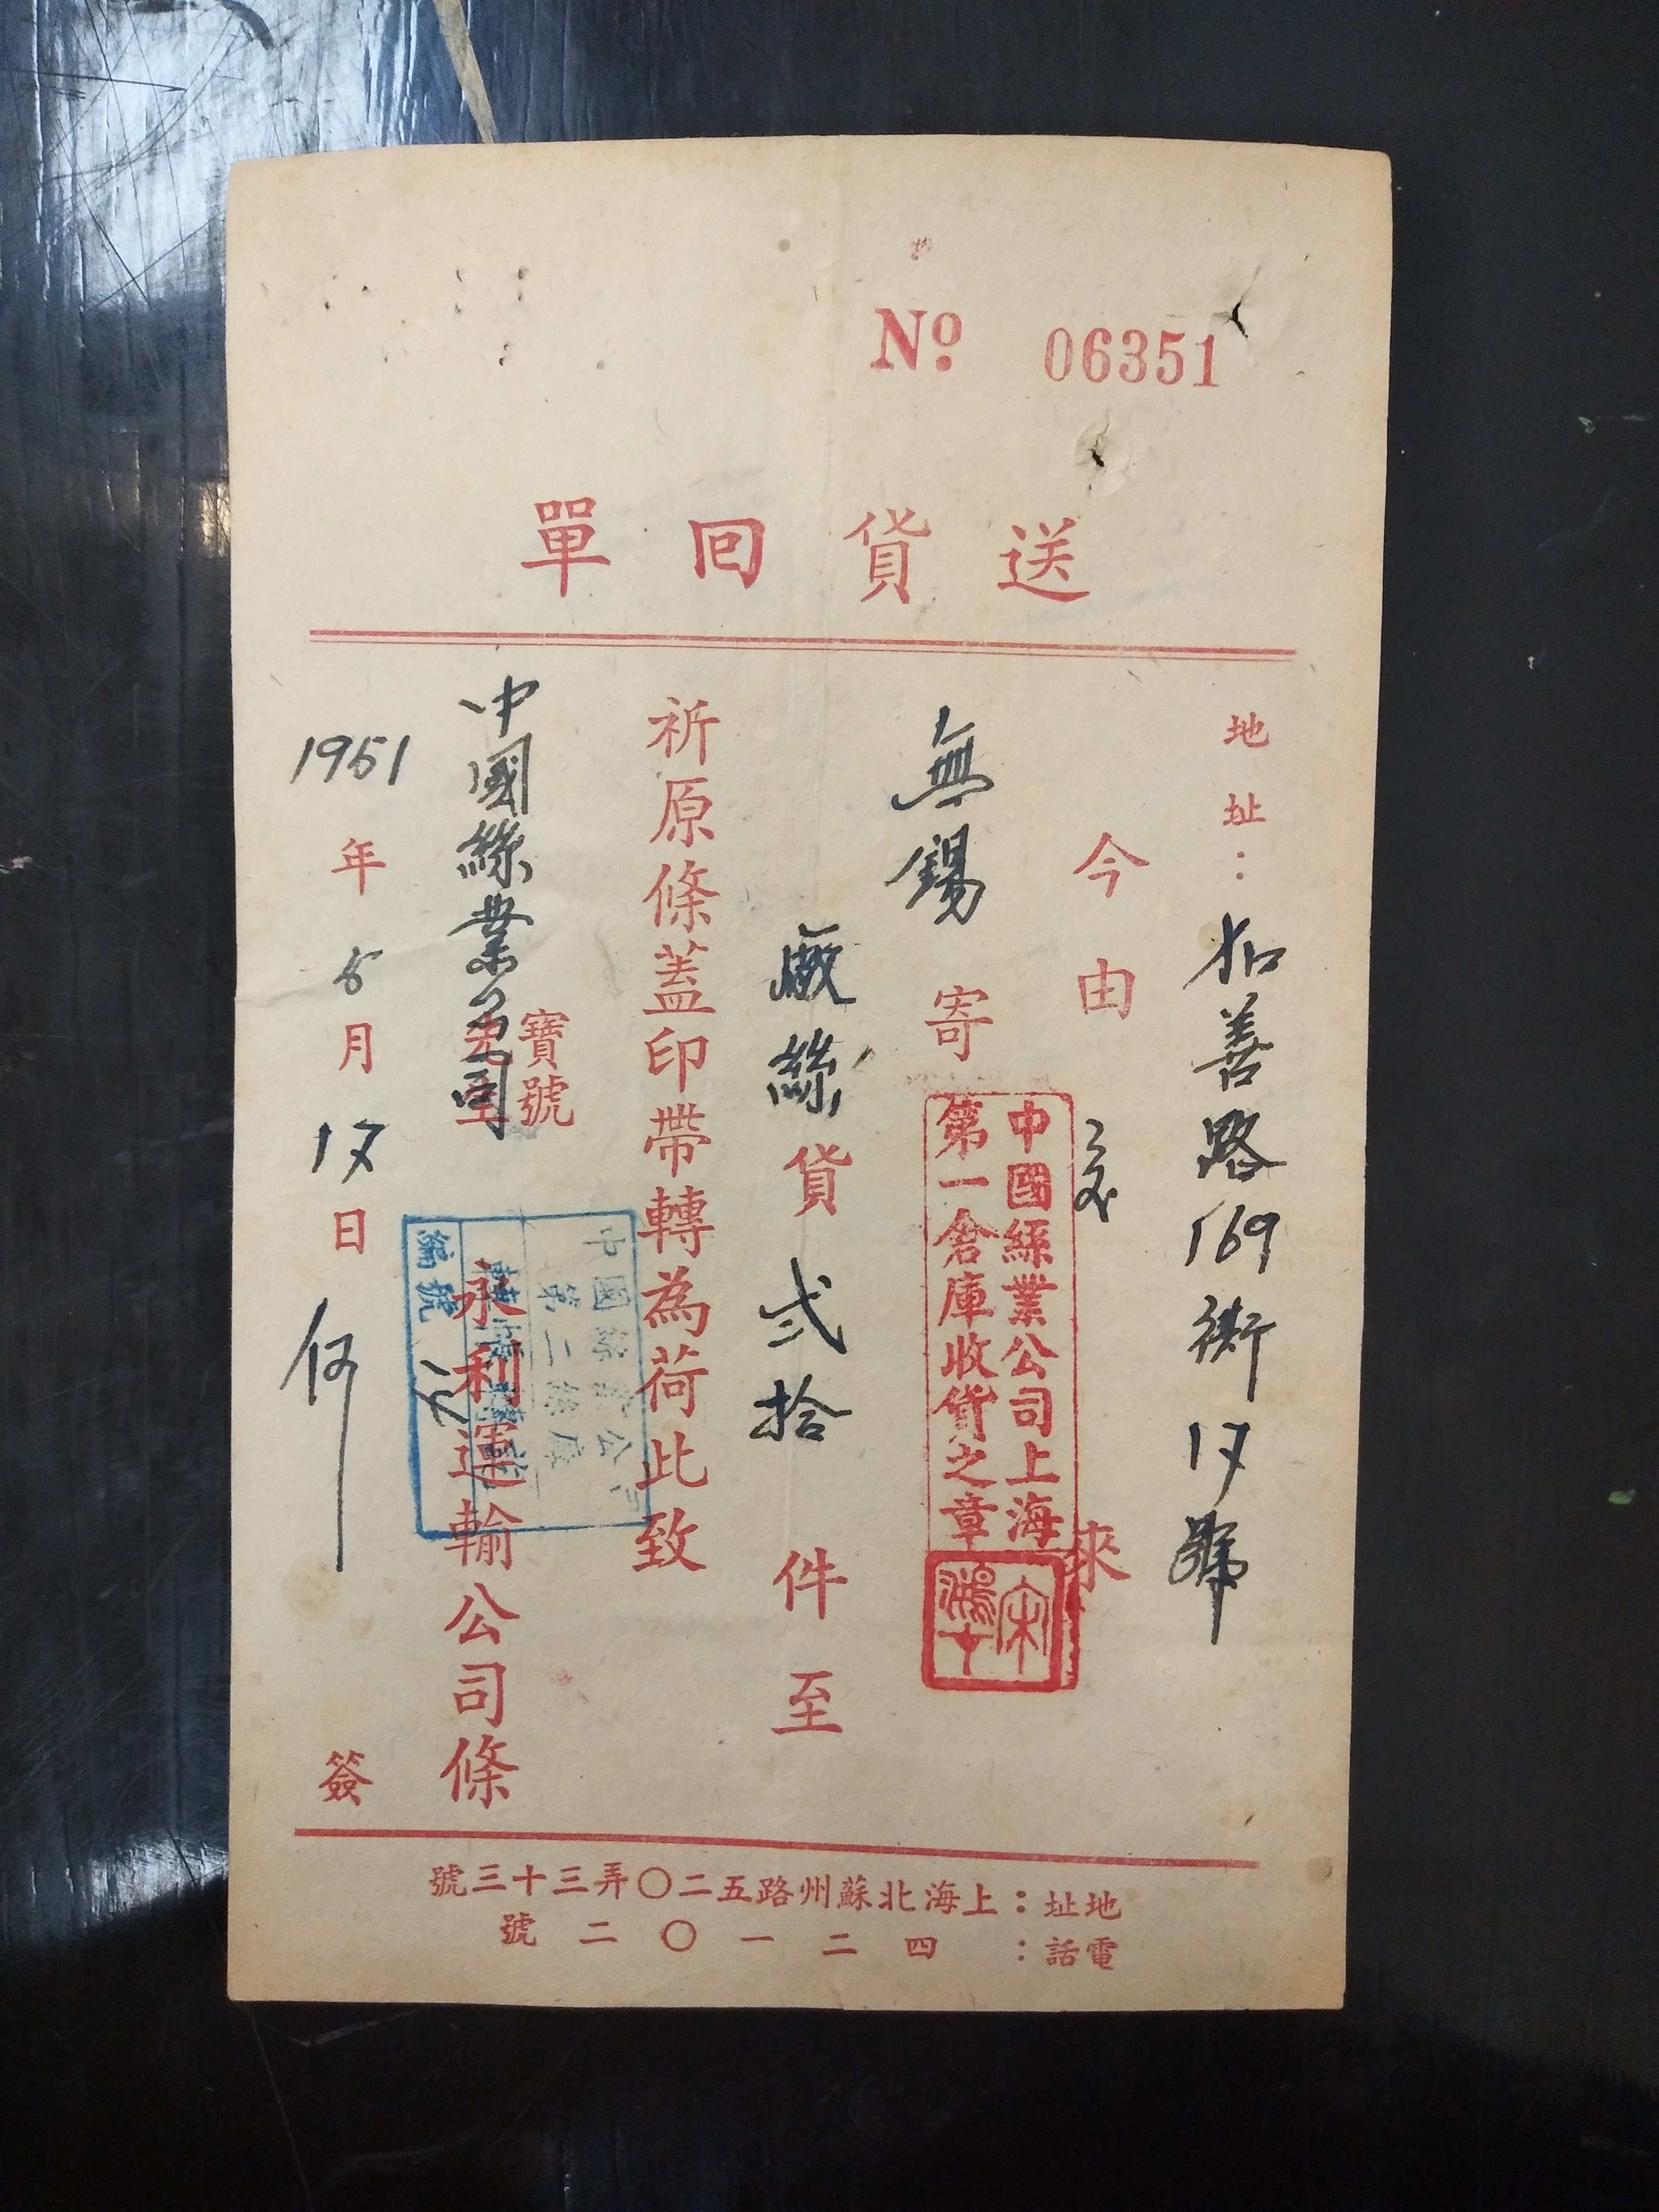 No 06351
送貨回單
地址：和善路169衖17號
今由 來
無錫寄
中國絲業公司上海
第一倉庫收貨之章
廠絲貨弍拾件至
祈原條蓋印帶轉為荷此致
中國絲業公司
寶號
永利運輸公司條
編號
1951年5月17日 何 簽
地址：上海北蘇州路五二〇弄三十三號
電話：四二一〇二號